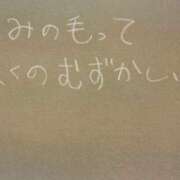 みの毛って
くのむずかしい